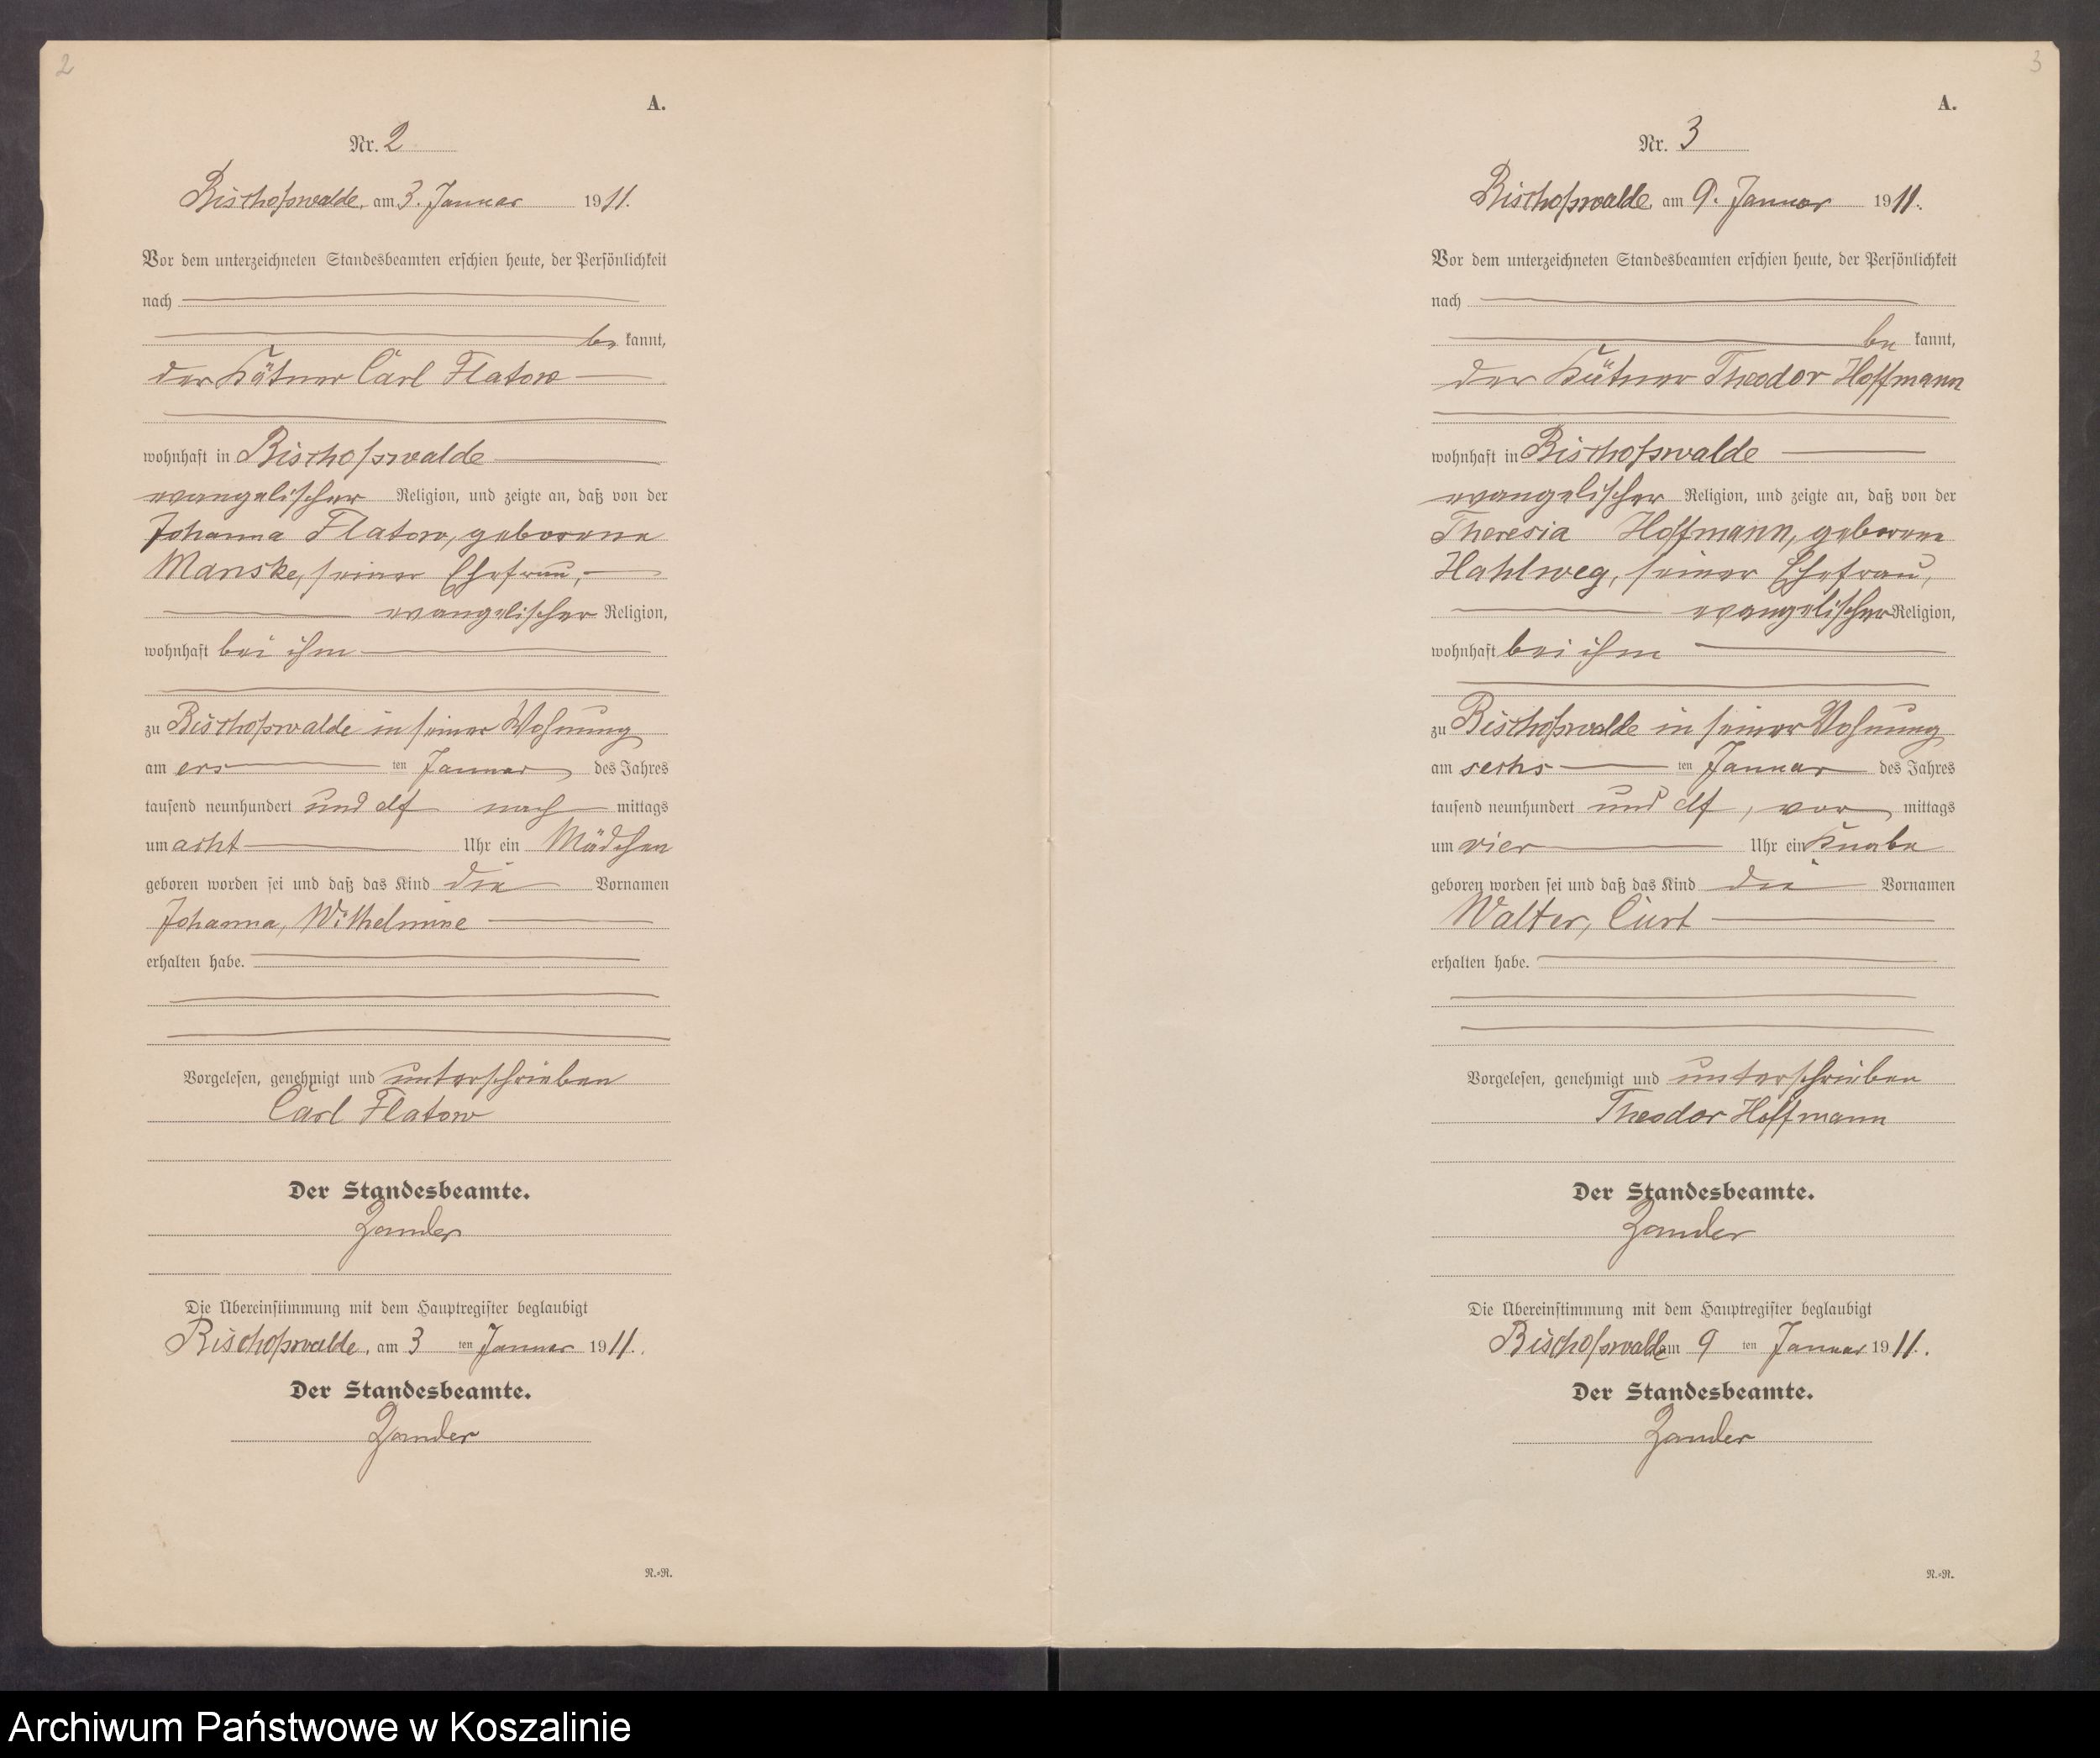 2
A.
Nr. 2
Bischofswalde, am 3. Januar 1911.
Vor dem unterzeichneten Standesbeamten erschien heute, der Persönlichkeit
nach
be kannt,
der Kätner Carl Flatow
wohnhaft in Bischofswalde
evangelischer Religion, und zeigte an, daß von der
Johanna Flatow, geborene
Manske, seiner Ehefrau,
evangelischer Religion,
wohnhaft bei ihm
zu Bischofswalde in seiner Wohnung
am ers ten Januar des Jahres
tausend neunhundert und elf nach mittags
um acht Uhr ein Mädchen
geboren worden sei und daß das Kind die Vornamen
Johanna, Wilhelmine
erhalten habe.
Vorgelesen, genehmigt und unterschrieben
Carl Flatow
Der Standesbeamte.
Zander
Die Übereinstimmung mit dem Hauptregister beglaubigt
Bischofswalde, am 3 ten Januar 1911.
Der Standesbeamte.
Zander
R.=R.
3
A.
Nr. 3
Bischofswalde, am 9. Januar 1911.
Vor dem unterzeichneten Standesbeamten erschien heute, der Persönlichkeit
nach
be kannt,
der Theodor Hoffmann
wohnhaft in Bischofswalde
evangelischer Religion, und zeigte an, daß von der
Theresia Hoffmann, geborene
Hahlweg, seiner Ehefrau,
evangelischer Religion,
wohnhaft bei ihm
zu Bischofswalde in seiner Wohnung
am sechs ten Januar des Jahres
tausend neunhundert und elf, vor mittags
um vier Uhr ein Knabe
geboren worden sei und daß das Kind die Vornamen
Walter, Curt
erhalten habe.
Vorgelesen, genehmigt und unterschrieben
Theodor Hoffmann
Der Standesbeamte.
Zander
Die Übereinstimmung mit dem Hauptregister beglaubigt
Bischofswalde am 9 ten Januar 1911.
Der Standesbeamte.
Zander
R.=R.
Archiwum Państwowe w Koszalinie